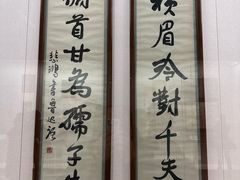 橫眉冷對千夫
俯首甘為孺子牛
悲鴻書魯迅